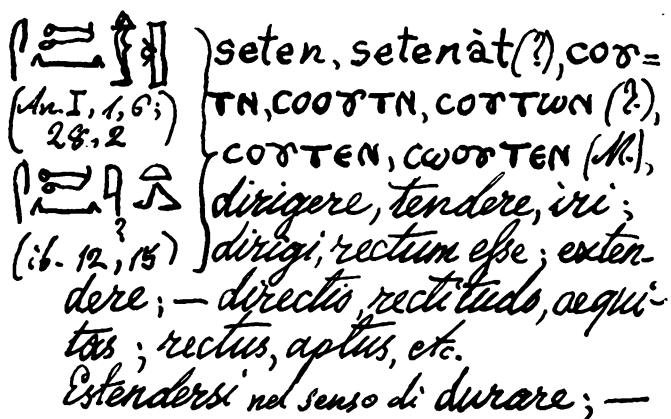 seten, setenàt(?), ⲥⲟⲩ=
(An. I, 1, 6; ⲧⲛ, ⲥⲟⲟⲩⲧⲛ, ⲥⲟⲩⲧⲱⲛ (?.),
28, 2) ⲥⲟⲩⲧⲉⲛ, ⲥⲱⲟⲩⲧⲉⲛ (M.),
dirigere, tendere, iri;
(ib. 12, 15) dirigi, rectum esse; exten-
dere; — directio, rectitudo, aequi-
tas; rectus, aptus, etc.
Estendersi nel senso di durare; —